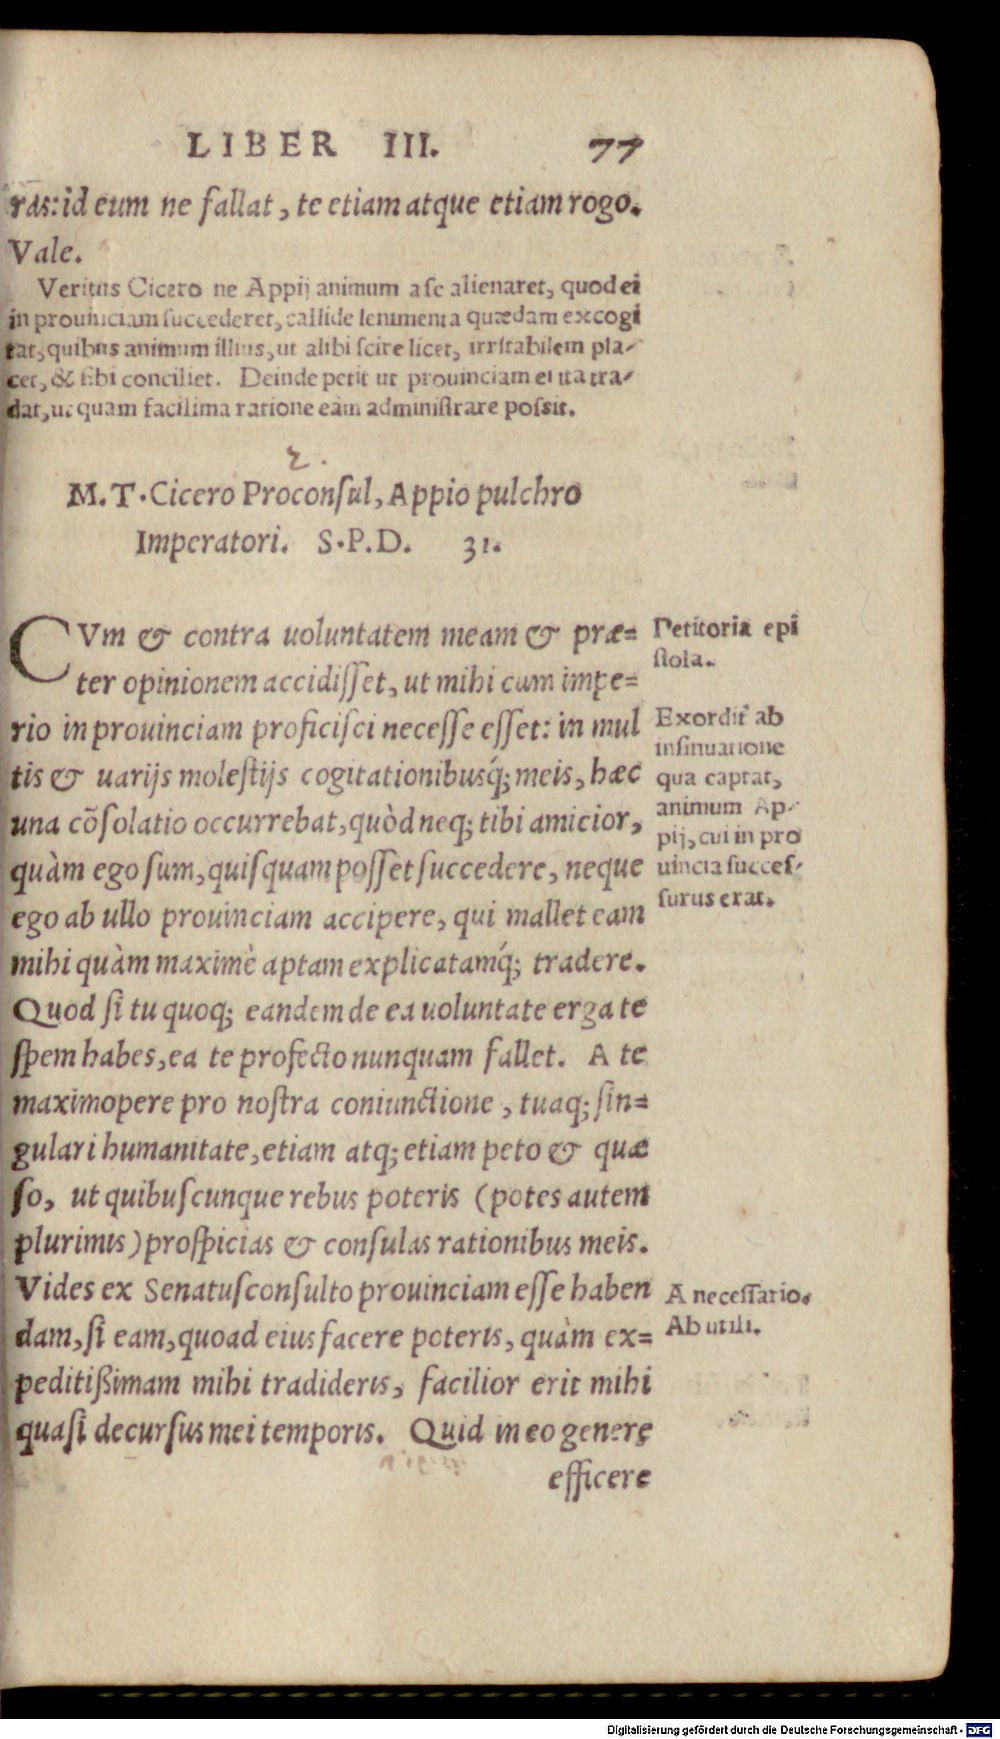 LIBER III. 77
ras: id eum ne fallat, te etiam atque etiam rogo.
Vale.
Veritus Cicero ne Appij animum a se alienaret, quod ei
in prouinciam succederet, callide lenimenta quædam excogi
tat, quibus animum illius, ut alibi scire licet, irritabilem pla-
cet, & sibi conciliet. Deinde petit ut prouinciam ei ita tra-
dat, ut quam facilima ratione eam administrare possit.
2.
M. T. Cicero Proconsul, Appio pulchro
Imperatori. S. P. D. 31.
CVm & contra uoluntatem meam & præ=
Petitoria epi
stola.
ter opinionem accidisset, ut mihi cum impe=
rio in prouinciam proficisci necesse esset: in mul
Exordiũ ab
insinuatione
qua captat,
animum Ap-
pij, cui in pro
uincia succes-
surus erat.
tis & uarijs molestijs cogitationibusq́; meis, hæc
una cõsolatio occurrebat, quòd neq; tibi amicior,
quàm ego sum, quisquam posset succedere, neque
ego ab ullo prouinciam accipere, qui mallet eam
mihi quàm maximè aptam explicatamq́; tradere.
Quod si tu quoq; eandem de ea uoluntate erga te
spem habes, ea te profecto nunquam fallet. A te
maximopere pro nostra coniunctione, tuaq; sin=
gulari humanitate, etiam atq; etiam peto & quæ
so, ut quibuscunque rebus poteris (potes autem
plurimis) prospicias & consulas rationibus meis.
Vides ex Senatusconsulto prouinciam esse haben
A necessario.
Ab utili.
dam, si eam, quoad eius facere poteris, quàm ex=
peditißimam mihi tradideris, facilior erit mihi
quasi decursus mei temporis. Quid in eo genere
efficere
Digitalisierung gefördert durch die Deutsche Forschungsgemeinschaft - DFG